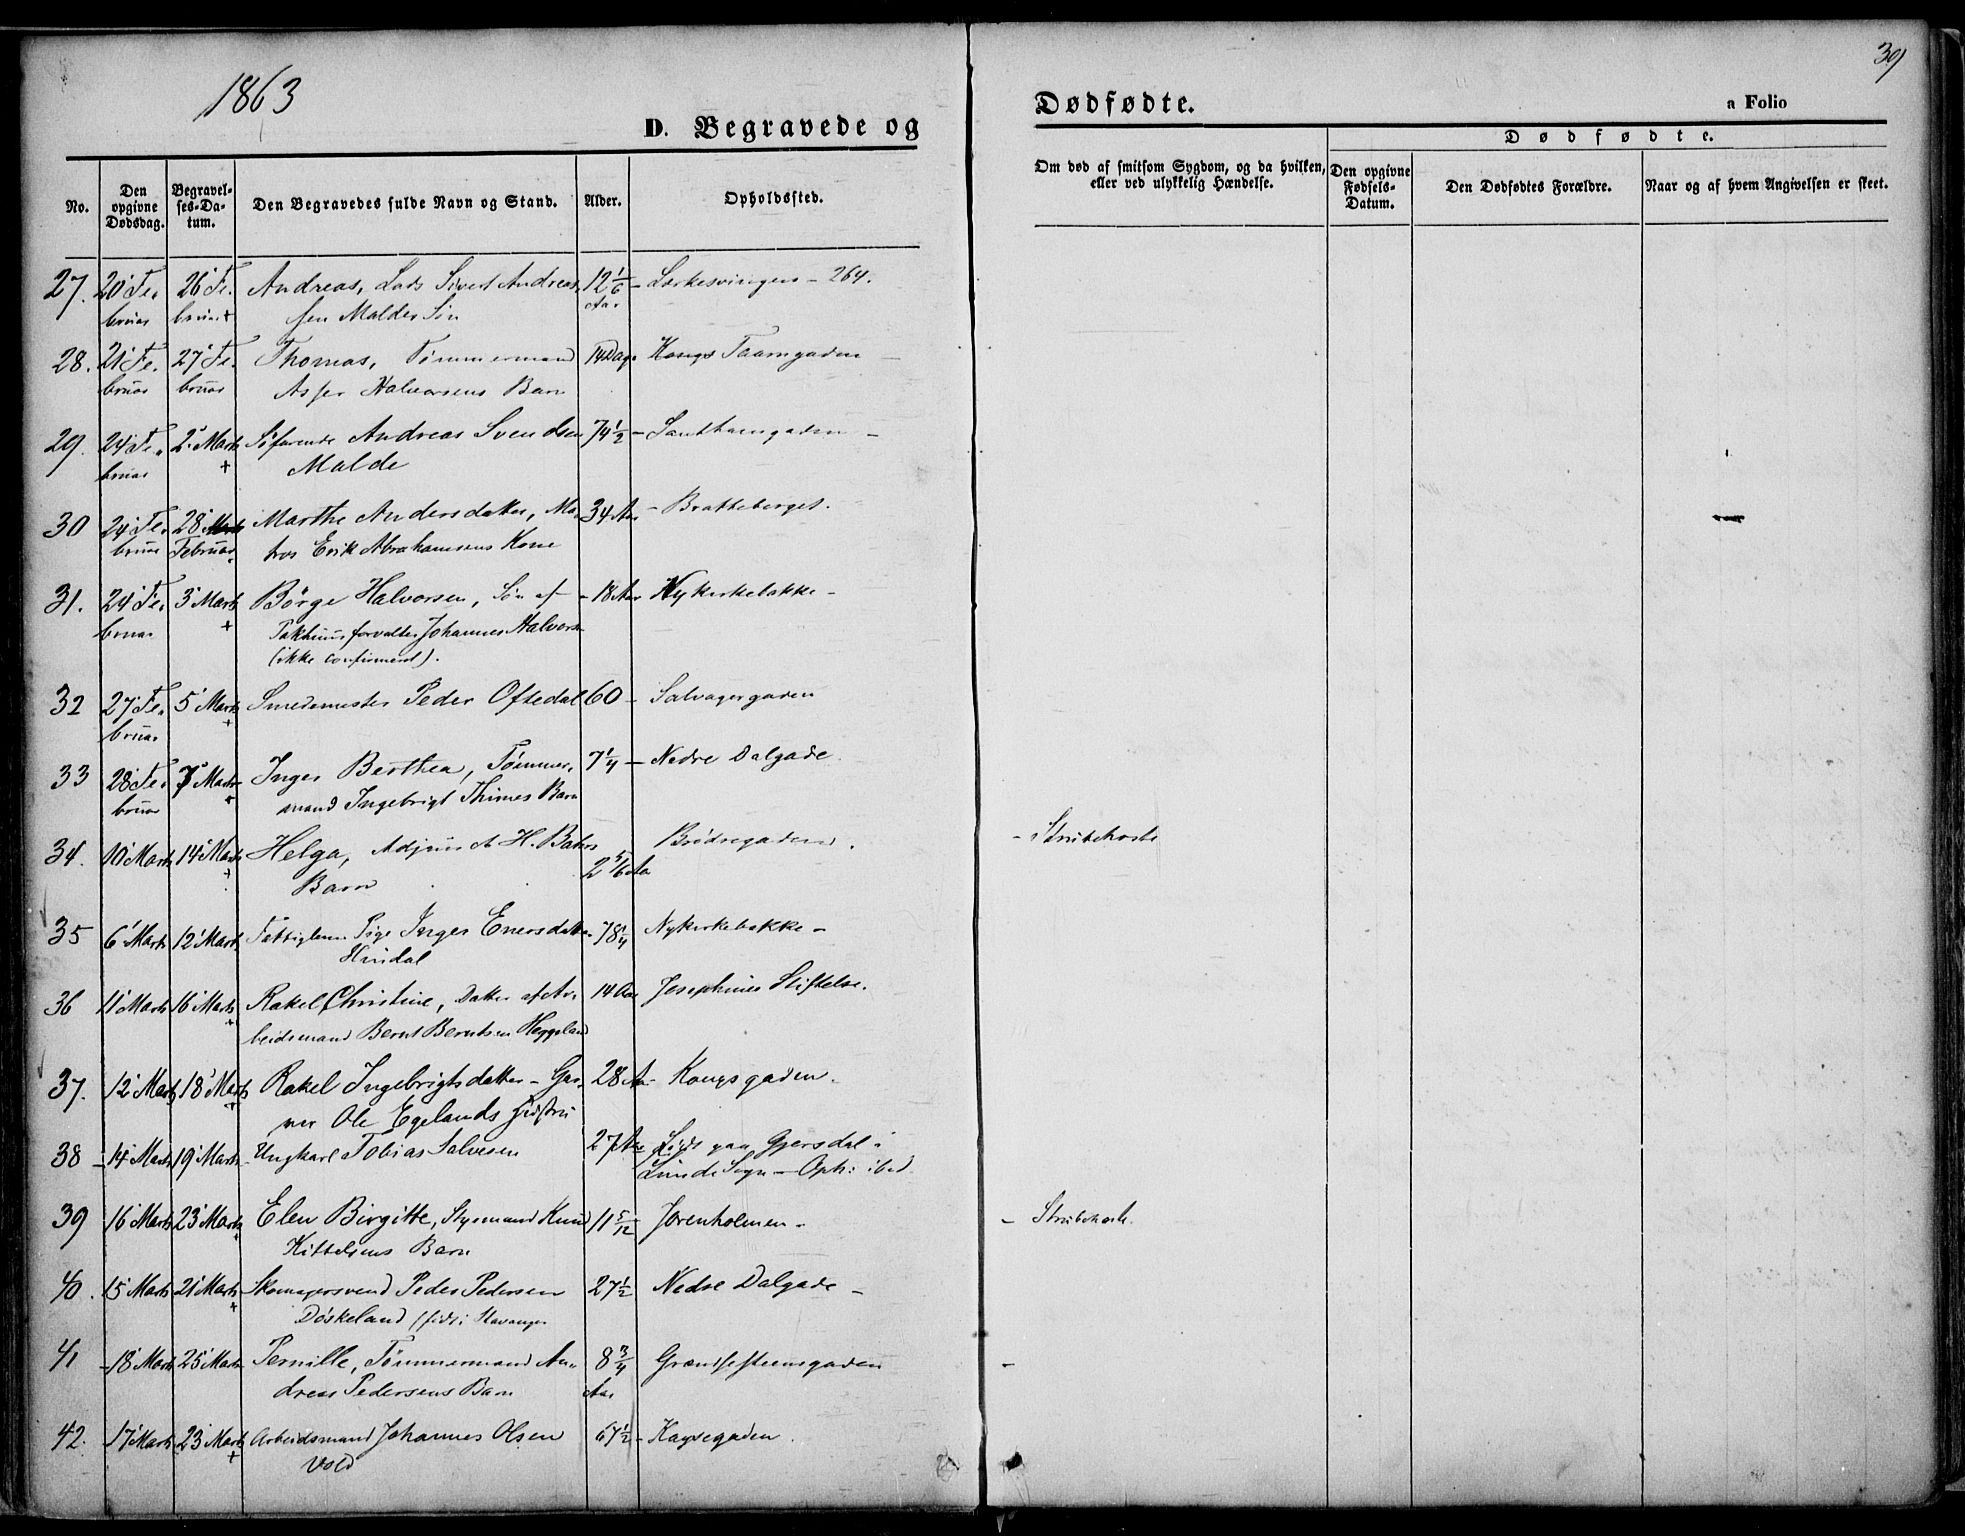 1863
39
D. Begravede og
Dødfødte.
a Folio
Dødfødte.
No.
Den opgivne Dødsdag.
Begravelses-Datum.
Den Begravedes fulde Navn og Stand.
Alder.
Opholdssted.
Om død af smitsom Sygdom, og da hvilken, eller ved ulykkelig Hændelse.
Den opgivne Fødsels-Datum.
Den Dødfødtes Forældre.
Naar og af hvem Angivelsen er skeet.
27. 20 Fe. 26 Fe. Andreas, Lods Sivert Andreas 12 1/6 – 264.
bruar bruar + sen Maldes Søn Aar
28. 21 Fe. 27 Fe. Thomas, Tømmermand 14 Dage
bruar bruar Halvorsens Barn
29. 24 Fe. 2 Marts Søfarende Andreas Svendsen 74 1/2 –
bruar + Malde
30 24 Fe. 28 Marts Marthe Andersdatter, Ma- 34 Aar – Bratteberget.
bruar Februar tros Erik Abrahamsens Kone
31. 24 Fe. 3 Marts Børge Halvorsen, Søn af – 18 Aar Nykirkebakke –
bruar + Pakhuusforvalter Johannes Halvorsen
(ikke confirmeret).
32 27 Fe. 5 Marts Smedemester Peder Oftedal 60 – Salvagergaden
bruar +
33 28 Fe. 7 Marts Inger Berthea, Tømmer- 7 1/4 – Nedre Dalgade.
bruar + mand Ingebrigt Thimes Barn
34. 10 Marts 14 Marts Helga, Adjunct H. Bahrs 2 5/6 Aar Brødregaden. – Strubehoste
+ Barn
35 6 Marts 12 Marts Fattiglem Pige Inger Enersdatter 78 1/4 Nykirkebakke –
Hindal
36 11 Marts 16 Marts Rakel Christine, Datter af Ar- 14 Aar Josephines Stiftelse.
+ beidsmand Bernt Berntsen Heggeland
37. 12 Marts 18 Marts Rakel Ingebrigtsdatter – Gar- 28 Aar – Kongsgaden.
+ ver Ole Egelands Hustru
38 – 14 Marts 19 Marts Ungkarl Tobias Salvesen 27 Aar Født paa Gjersdal i
Lunde Sogn – Oph: ibid
39 16 Marts 23 Marts Elen Birgitte, Styrmand Knud 11 5/12 Jorenholmen – – Strubehoste.
+ Kittelsens Barn
40. 15 Marts 21 Marts Skomagersvend Peder Pedersen 27 1/2 Nedre Dalgade –
+ Døskeland (født i Stavanger
41 – 18 Marts 25 Marts Pernille, Tømmermand An- 8 3/4 –
dreas Pedersens Barn Aar
42. 17 Marts 23 Marts Arbeidsmand Johannes Olsen 67 1/2 –
+ Vold